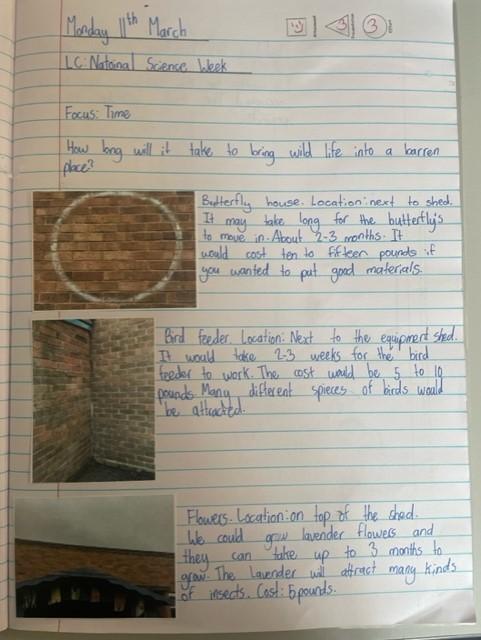 Monday 11th March
3
3
LC: Natoinal Science Week
Focus: Time
How long will it take to bring wild life into a barren
place?
Butterfly house. Location: next to shed.
It may take long for the butterfly's
to move in. About 2-3 months. It
would cost ten to fifteen pounds if
you wanted to put good materials.
Bird feeder. Location: Next to the equipment shed.
It would take 2-3 weeks for the bird
feeder to work. The cost would be 5 to 10
pounds. Many different spieces of birds would
be attracted.
Flowers. Location: on top of the shed.
We could grow lavender flowers and
they can take up to 3 months to
grow. The lavender will attract many kinds
of insects. Cost: 5 pounds.